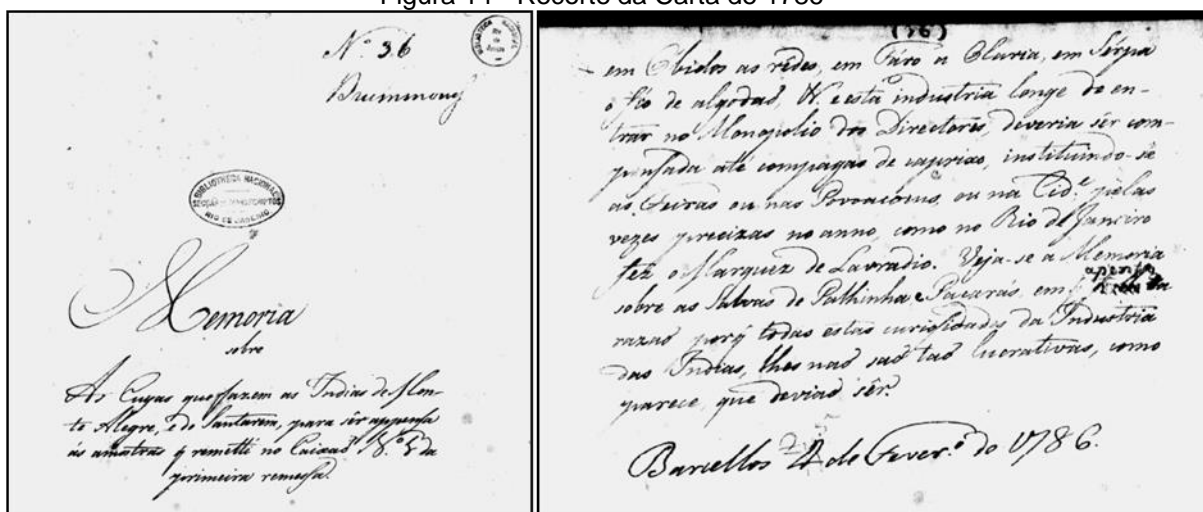 Figura 14 - Recorte da Carta de 1786
Nº 36
Drummond
BIBLIOTHECA NACIONAL
RIO DE JANEIRO
Memoria
sobre
As Cuyas que fazem as Indias de Mon-
te Alegre, e de Santarem, para ser appensa
ás amostras q remetti no Caixaõ Nº 5 da
primeira remessa.
(36)
em Obidos as rêdes, em Fáro a Olaria, em Sérpa
o fio de algodaõ, &. e esta industria longe de en-
trar no Monopolio dos Directores, deveria sêr com-
pensada até compagas de caprixo, instituindo-se
as Feiras ou nas Povoacoens, ou na Cid.e pelas
vezes precizas no anno, como no Rio de Janeiro
fez o Marquez de Lavradio. Veja-se a Memoria
sobre as Salvas de Palhinha, e Pacarás, em
apensa
razaõ porq̃ todas estas curiosidades da Industria
das Indias, lhes naõ saõ taõ lucrativas, como
parece, que deviaõ sêr.
Barcellos 4 de Fever.º de 1786.